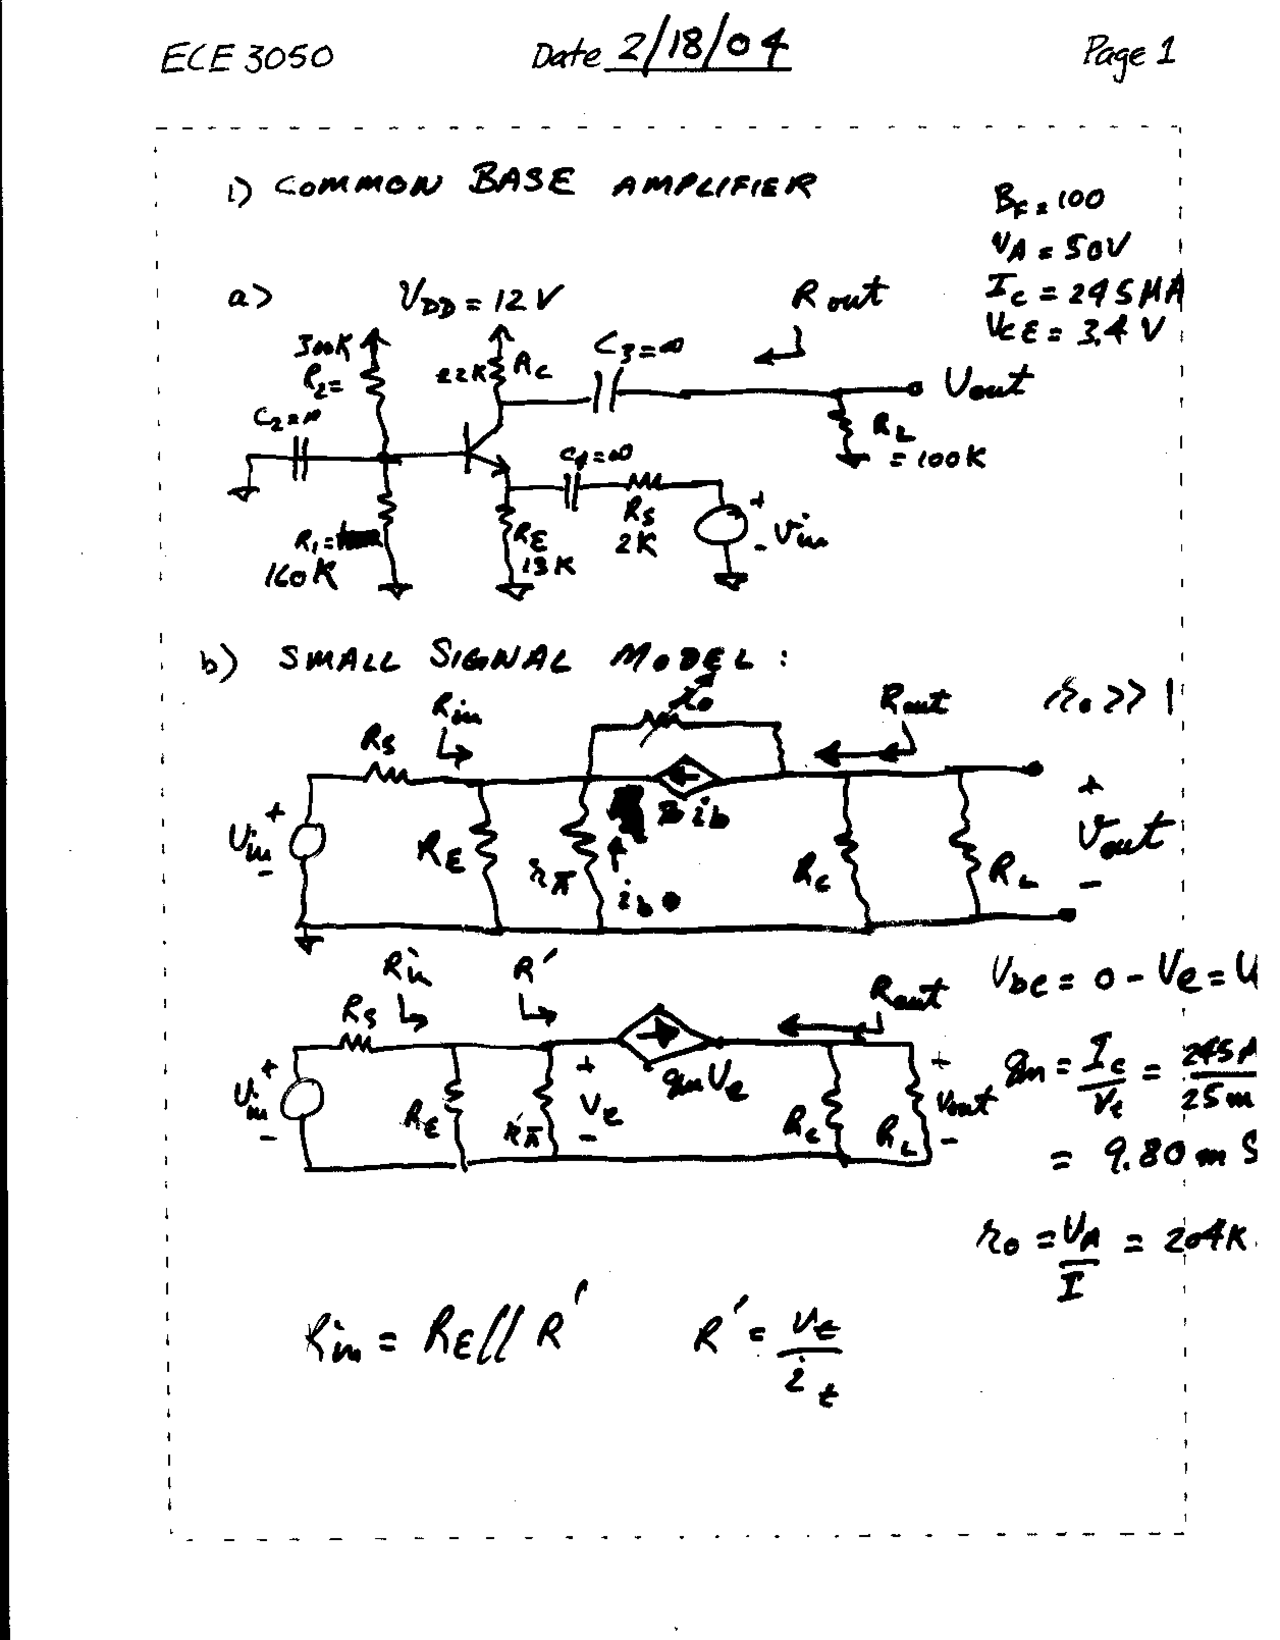 ECE 3050 Date 2/18/04 Page 1
1) COMMON BASE AMPLIFIER
BF = 100
VA = 50V
IC = 245 µA
VCE = 3.4 V
a)
VDD = 12 V
Rout
300K
R2 =
22K RC
C3 = ∞
Vout
C2 = ∞
RL
= 100K
C1 = ∞
RS
2K
+
-
Vin
R1 =
160K
RE
13K
b) SMALL SIGNAL MODEL :
ro >> 1
RS
Rin
ro
Rout
Vin
+
-
RE
rπ
B ib
ib
RC
RL
+
Vout
-
Rin
R'
Rout
Vbe = 0 - Ve =
RS
Vin
+
-
RE
rπ
+
Ve
-
gm Ve
RC
RL
+
Vout
-
gm = IC / Vt = 245 / 25 m
= 9.80 m S
ro = VA / I = 204K
Rin = RE // R' R' = ve / it